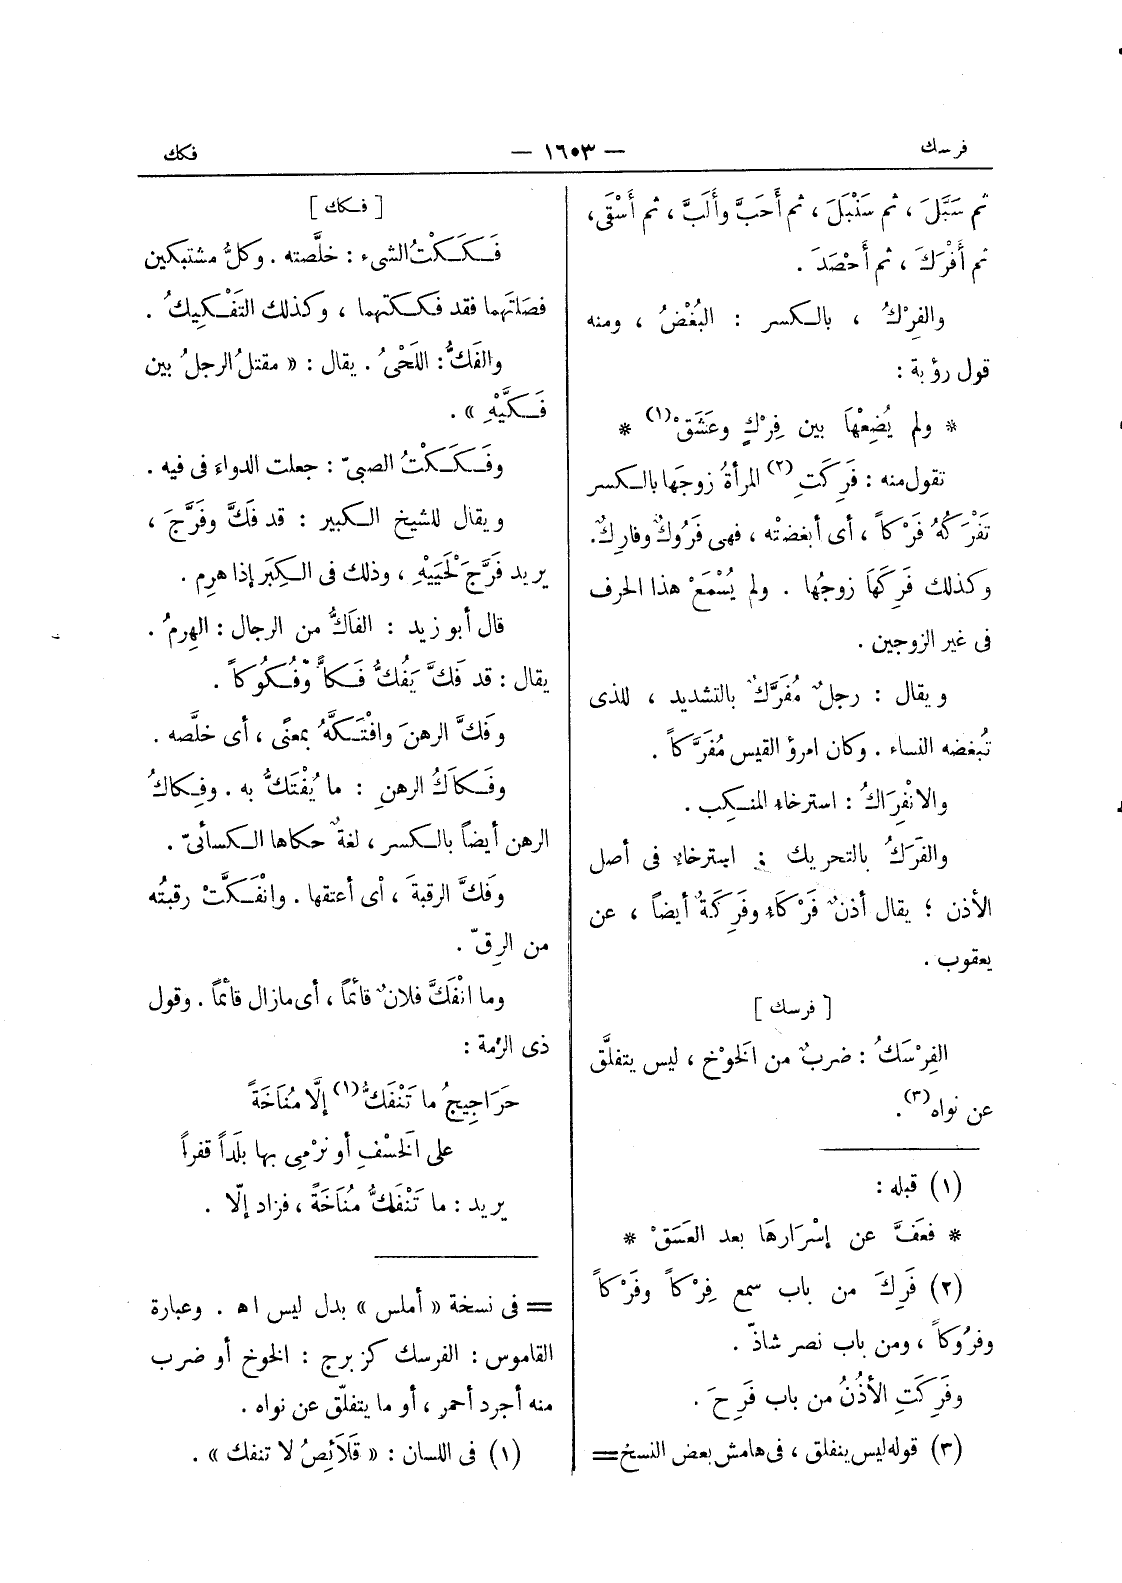 فرسك — ١٦٠٣ — فكك
ثم سَبَّلَ ، ثم سَنْبَلَ ، ثم أَحَبَّ وأَلَبَّ ، ثم أَسْقَى،
ثم أَفْرَكَ ، ثم أَحْصَدَ .
والفِرْكُ ، بالكسر : البُغْضُ ، ومنه
قول رؤبة :
* ولم يُضِعْهَا بين فِرْكٍ وعَشَقْ(١) *
تقول منه : فَرِكَتِ(٢) المرأةُ زوجَها بالكسر
تَفْرَكُهُ فَرْكاً ، أى أبغضتْه ، فهى فَرُوكٌ وفارِكٌ.
وكذلك فَرِكَهَا زوجُها . ولم يُسْمَعْ هذا الحرف
فى غير الزوجين .
ويقال : رجلٌ مُفَرَّكٌ بالتشديد ، للذى
تُبغضه النساء . وكان امرؤ القيس مُفَرَّكاً .
والانْفِرَاكُ : استرخاء المنكِب .
والفَرَكُ بالتحريك : استرخاء فى أصل
الأذن ؛ يقال أذنٌ فَرْكَاء وفَرِكَةٌ أيضاً ، عن
يعقوب .
[ فرسك ]
الفِرْسَكُ : ضربٌ من الخَوْخ ، ليس يتفلَّق
عن نواه(٣).
(١) قبله :
* فعَفَّ عن إسْرَارِهَا بعد العَسَقْ *
(٢) فَرِكَ من باب سمع فِرْكاً وفَرْكاً
وفرُوكاً ، ومن باب نصر شاذّ .
وفَرِكَتِ الأذُنُ من باب فَرِحَ .
(٣) قوله ليس ينفلق ، فى هامش بعض النسخ =
[ فكك ]
فَكَكْتُ الشىء : خلَّصته . وكلُّ مشتبكين
فصَلتَهما فقد فككتهما ، وكذلك التَفْكِيكُ .
والفَكُّ : اللَحْىُ . يقال : « مقتلُ الرجلُ بين
فَكَّيْهِ » .
وفَكَكْتُ الصبىّ : جعلت الدواءَ فى فيه .
ويقال للشيخ الكبير : قد فَكَّ وفَرَّجَ ،
يريد فَرَّجَ لَحْيَيْهِ ، وذلك فى الكِبَر إذا هرِم .
قال أبو زيد : الفَاكُّ من الرجال : الهِرمُ .
يقال : قد فَكَّ يَفُكُّ فَكاًّ وَفُكُوكاً .
وفَكَّ الرهنَ وافْتَكَّهُ بمعنًى ، أى خلَّصه .
وفَكاَكُ الرهنِ : ما يُفْتَكُّ به . وفِكاكُ
الرهن أيضاً بالكسر ، لغةٌ حكاها الكسائىّ .
وفَكَّ الرقبةَ ، أى أعتقها . وانْفَكَّتْ رقبتُه
من الرِقّ .
وما انْفَكَّ فلانٌ قائماً ، أى مازال قائماً . وقول
ذى الرُمة :
حَرَاجِيجُ ما تَنْفَكُّ(١) إلَّا مُنَاخَةً
على الخَسْفِ أو نَرْمِى بها بلَداً قفراً
يريد : ما تَنْفَكُّ مُنَاخَةً ، فزاد إلّا .
= فى نسخة « أملس » بدل ليس اه . وعبارة
القاموس : الفرسك كزبرج : الخوخ أو ضرب
منه أجرد أحمر ، أو ما يتفلّق عن نواه .
(١) فى اللسان : « قَلَائِصُ لا تنفك » .